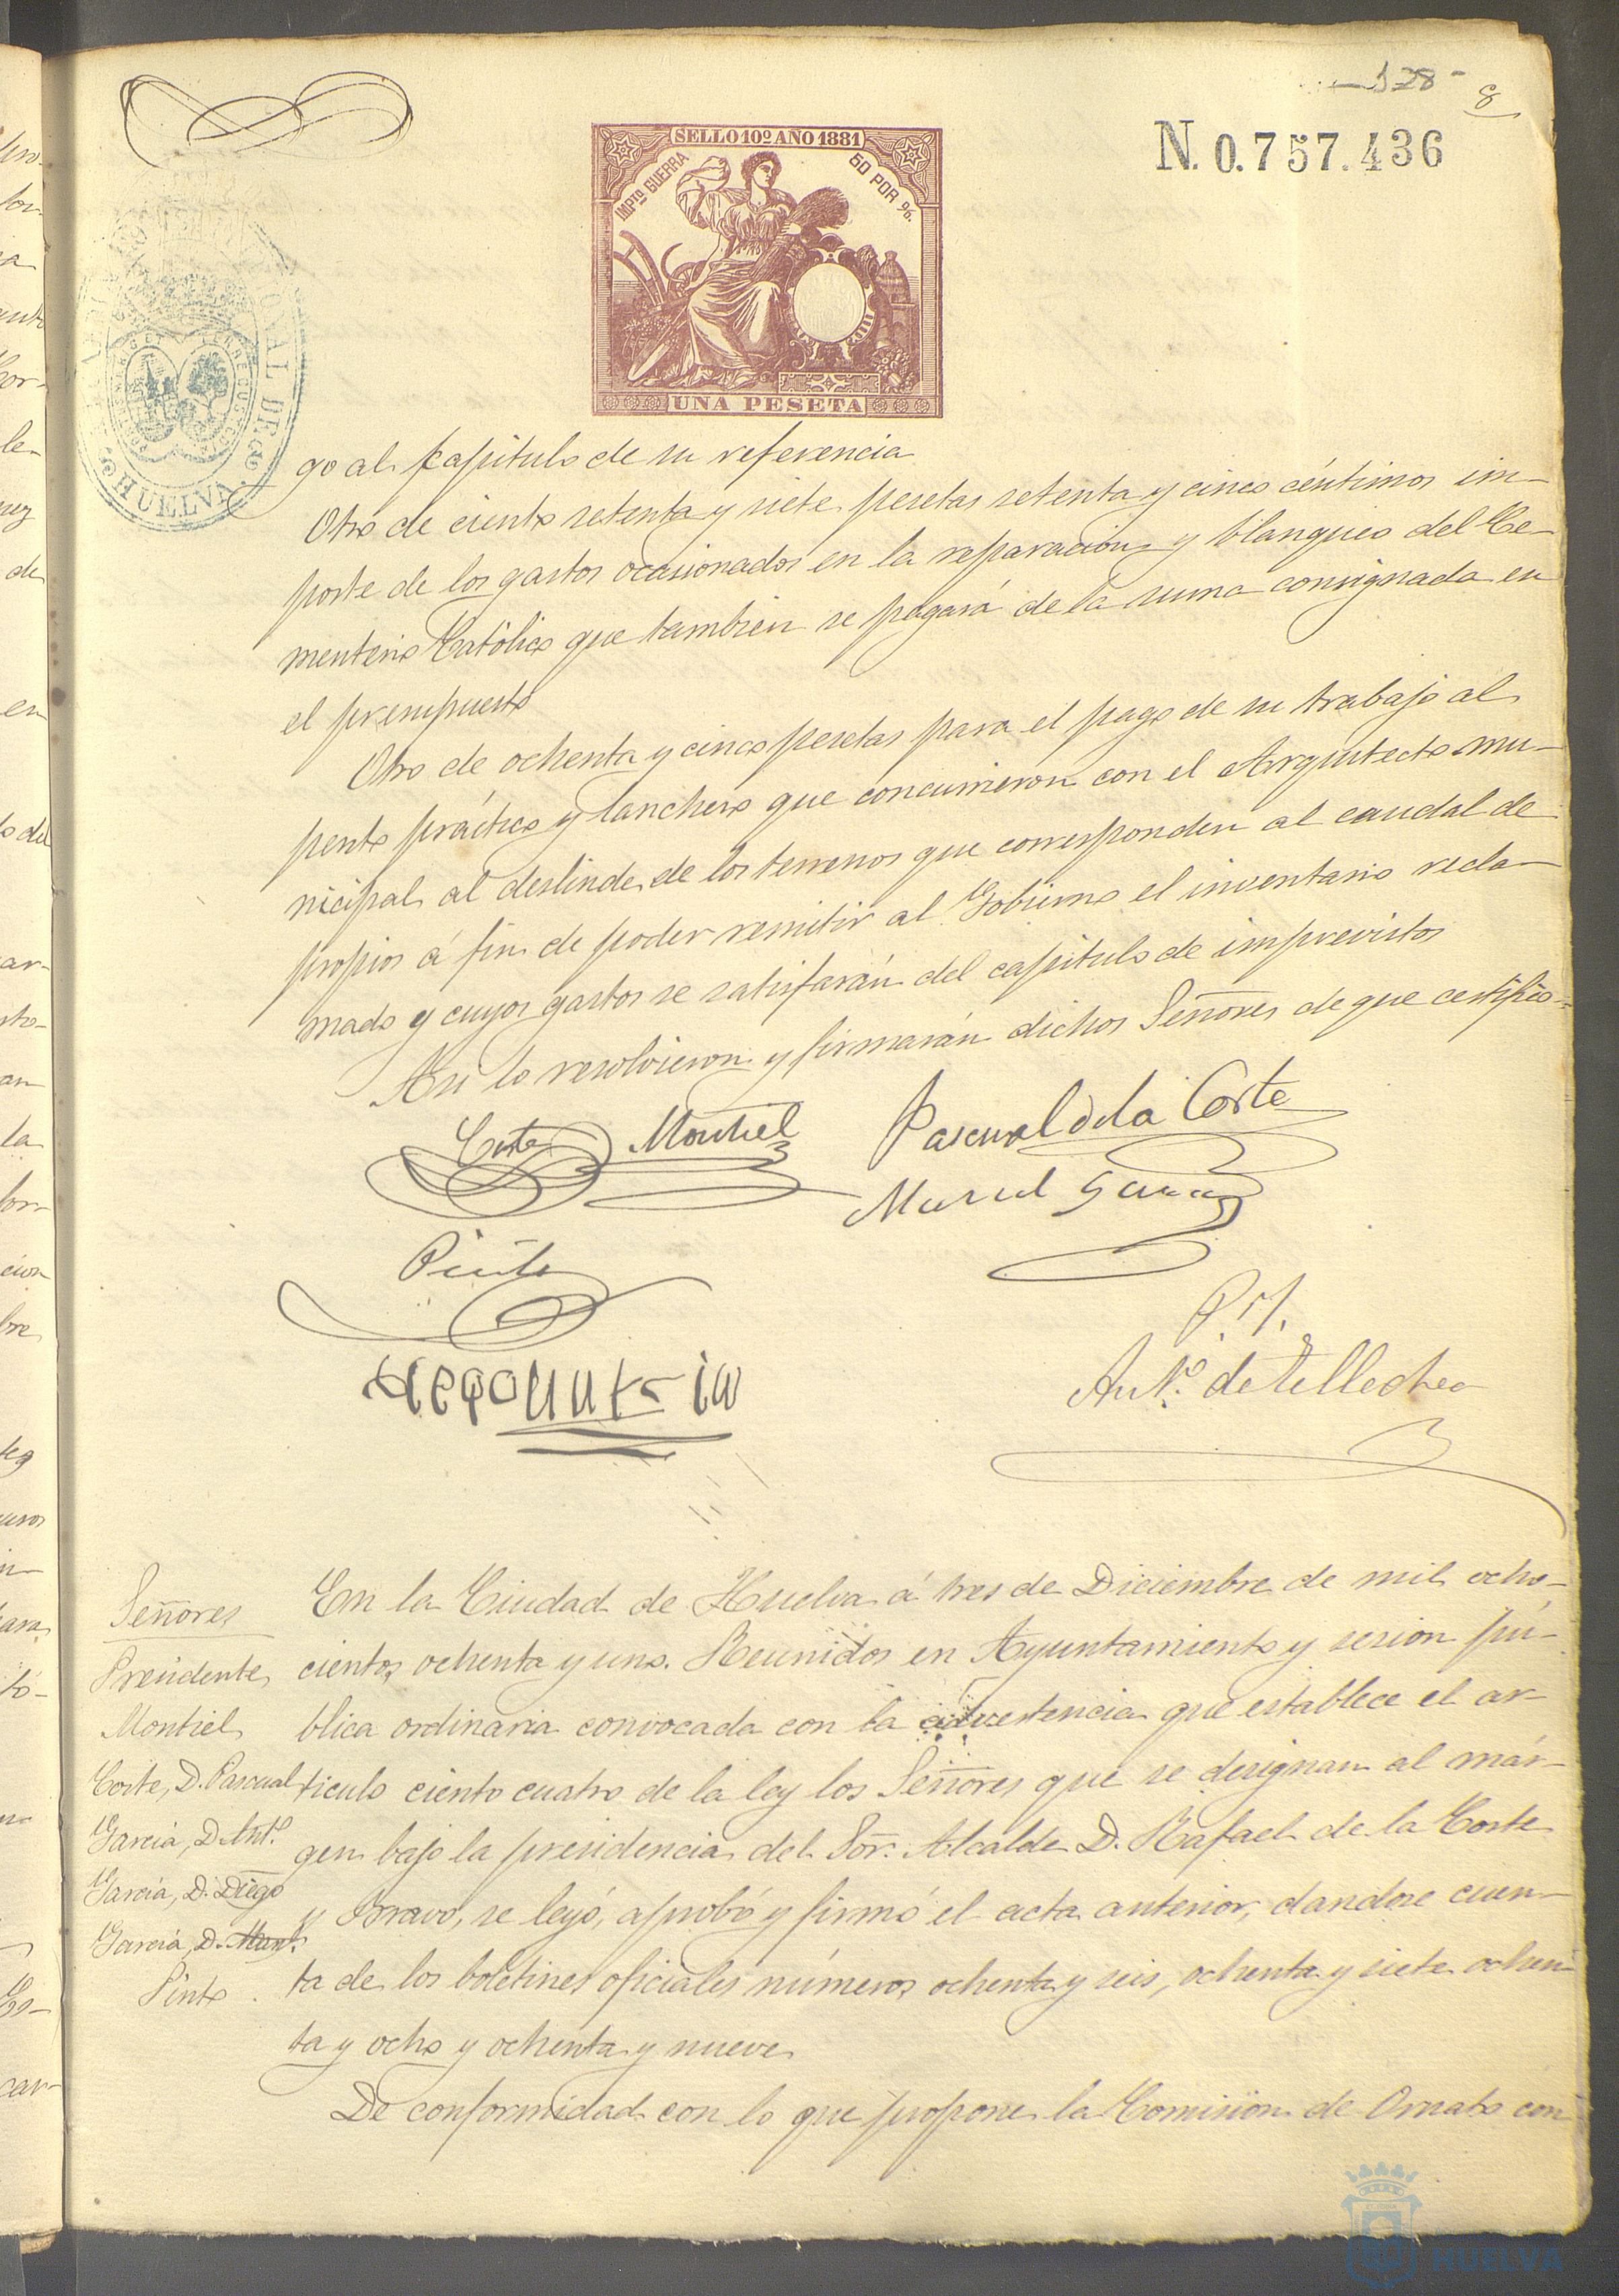 128
8
SELLO 10º AÑO 1881
IMPTO GUERRA
50 POR %.
UNA PESETA
N. 0.757.436
HUELVA
go al Capitulo de su referencia
Otro de ciento setenta y siete pesetas setenta y cinco céntimos im-
porte de los gastos ocasionados en la reparacion y blanqueo del Ce-
menterio Católico que tambien se pagará de la suma consignada en
el presupuesto
Otro de ochenta y cinco pesetas para el pago de su trabajo al
perito práctico y lanchero que concurrieron con el Arquitecto mu-
nicipal al deslinde de los terrenos que corresponden al caudal de
propios á fin de poder remitir al Gobierno el inventario recla-
mado y cuyos gastos se satisfarán del capitulo de imprevistos
Asi lo resolvieron y firmarán dichos Señores de que certifico=
Corte Montiel Pascual de la Corte
Manuel Garcia
Pinto
P. I.
Antº. de Tellechea
Señores
Presidente
Montiel
Corte, D. Pascual
Garcia, D. Antº.
Garcia, D. Diego
Garcia, D. Manl.
Pinto.
En la Ciudad de Huelva á tres de Diciembre de mil ocho-
cientos ochenta y uno. Reunidos en Ayuntamiento y sesion pú-
blica ordinaria convocada con la advertencia que establece el ar-
ticulo ciento cuatro de la ley los Señores que se designan al már-
gen bajo la presidencia del Sor. Alcalde D. Rafael de la Corte
y Bravo, se leyó, aprobó y firmó el acta anterior, dandose cuen-
ta de los boletines oficiales números ochenta y seis, ochenta y siete ochen-
ta y ocho y ochenta y nueve
De conformidad con lo que propone la Comision de Ornato con
HUELVA